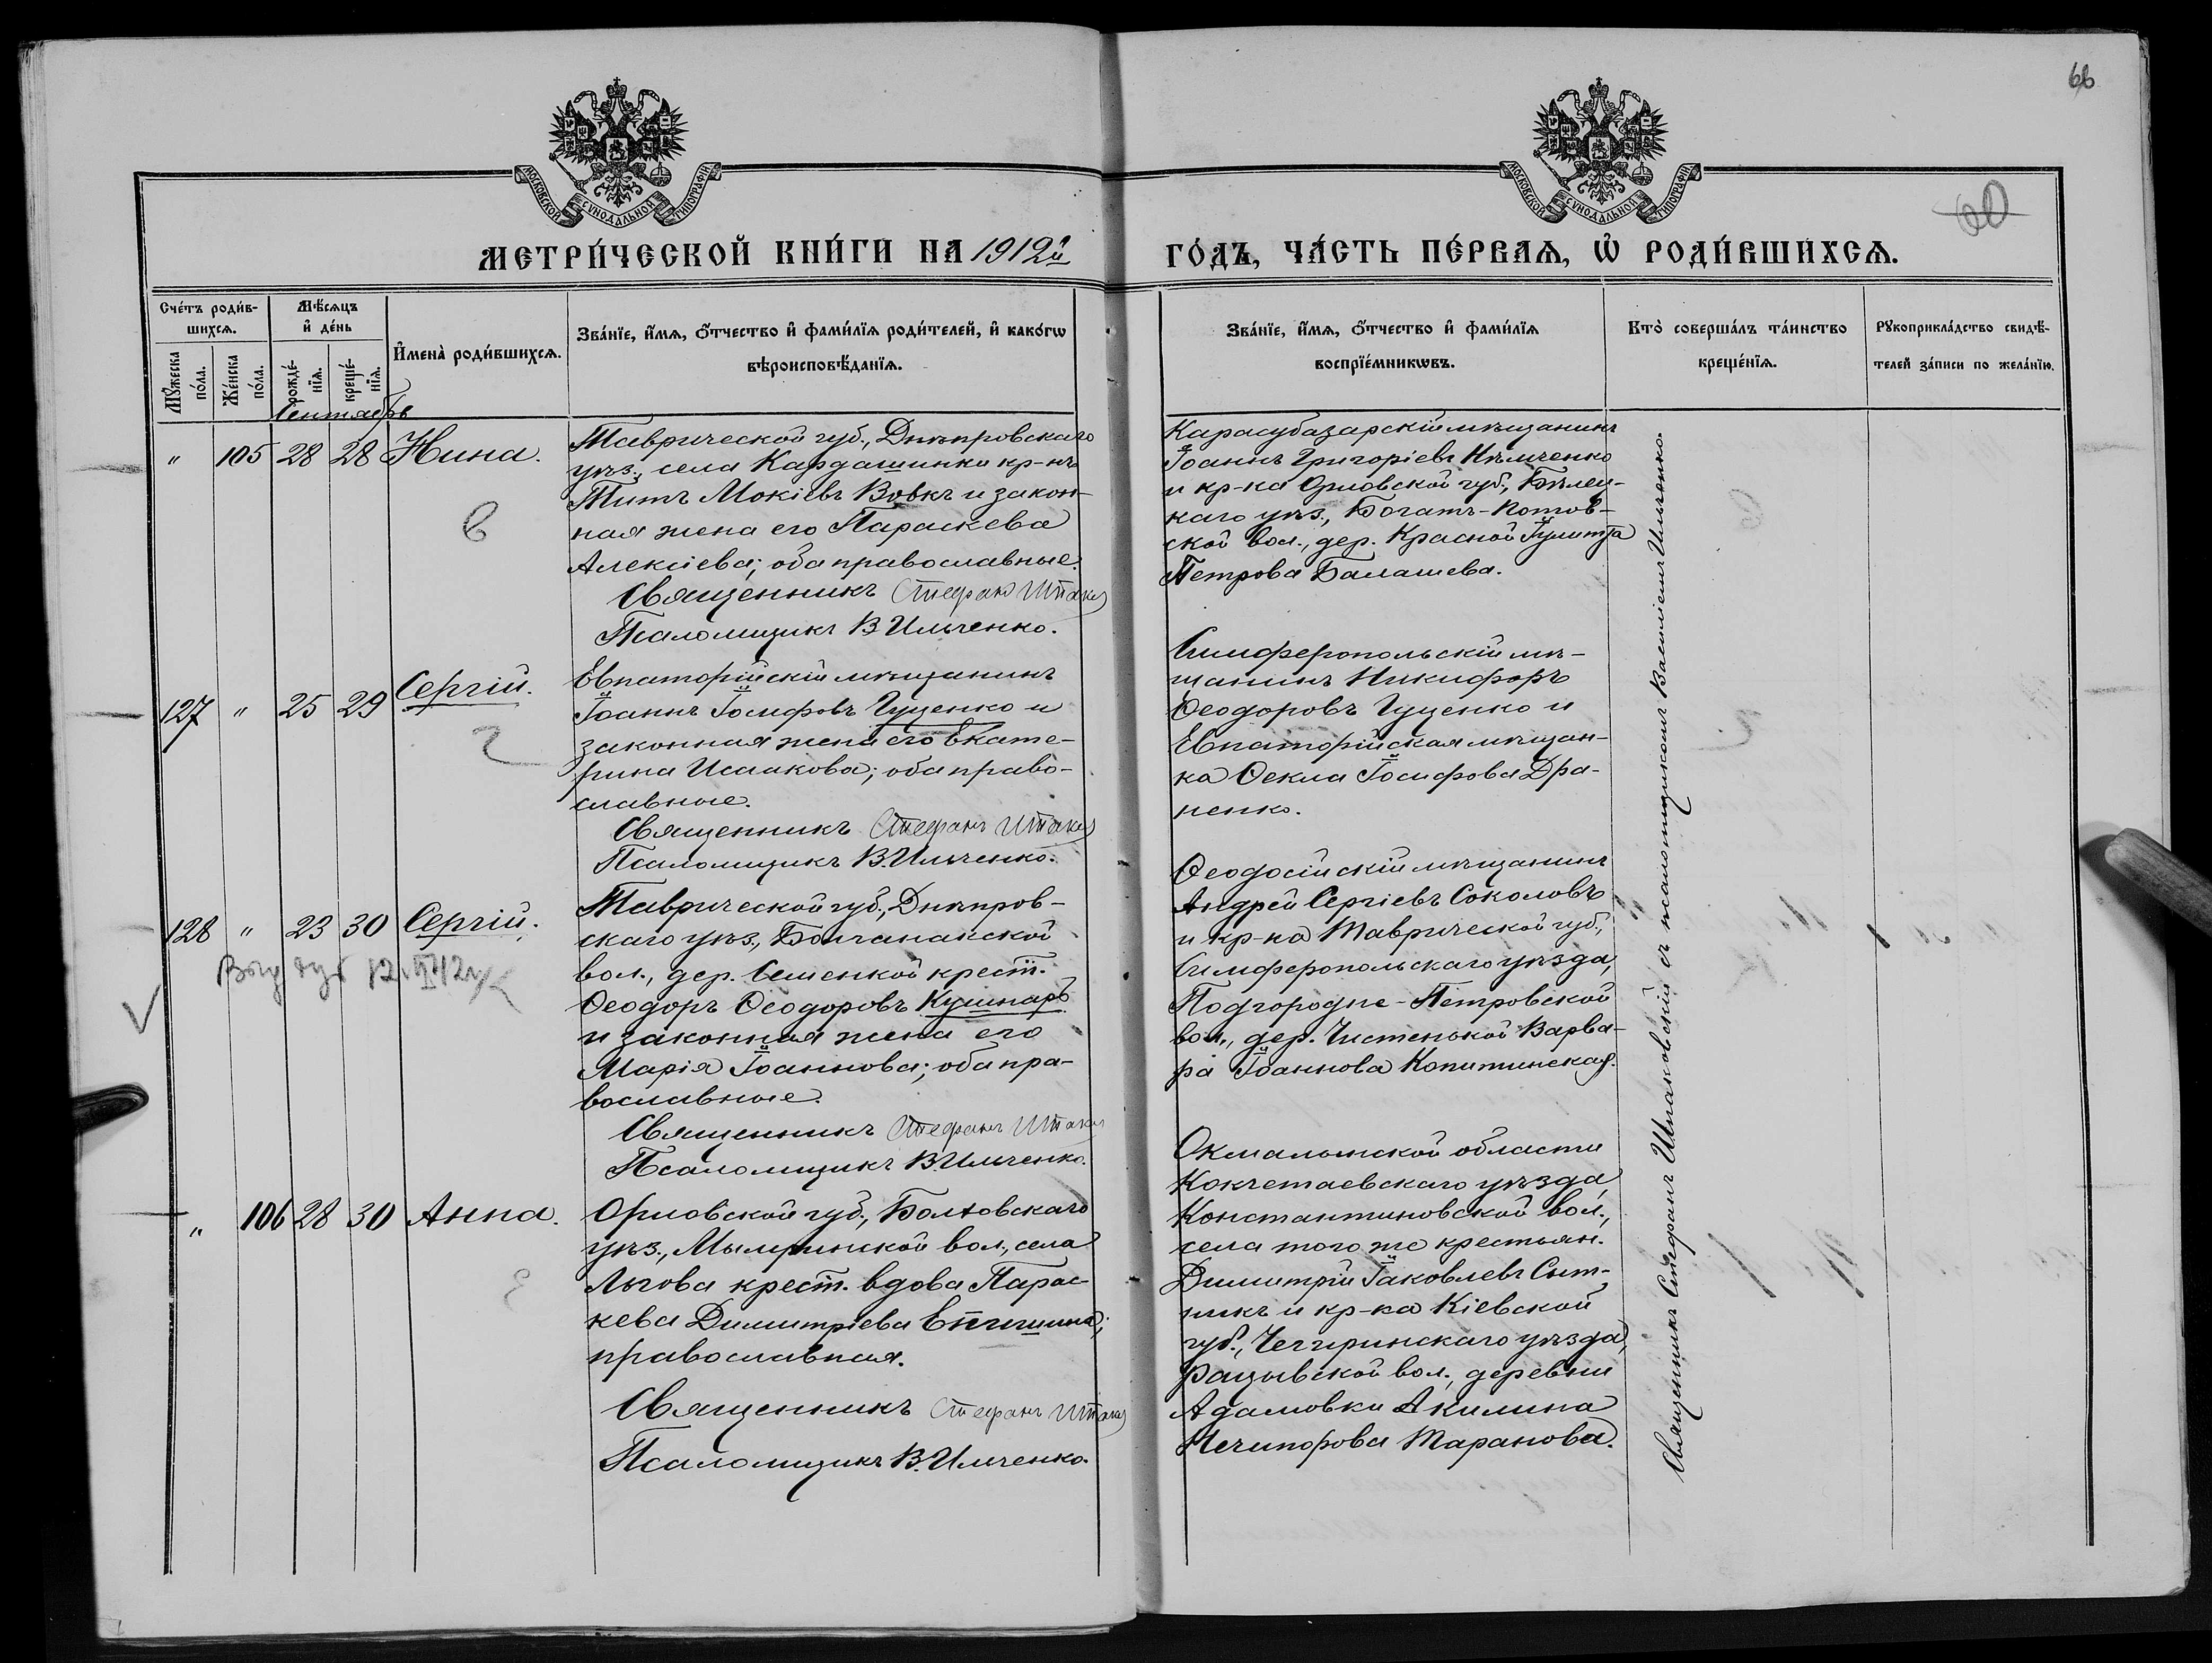 66
60
МОСКОВСКОЙ СѴНОДАЛЬНОЙ ТИПОГРАФІИ
МОСКОВСКОЙ СѴНОДАЛЬНОЙ ТИПОГРАФІИ
МЕТРИ́ЧЕСКОЙ КНИ́ГИ НА 1912й
ГО́ДЪ, ЧА́СТЬ ПЕ́РВАѦ, Ѡ РОДИ́ВШИХСѦ.
Сче́тъ роди́в-
шихсѧ.
Мꙋ́жеска
по́ла.
Же́нска
по́ла.
Мѣ́сѧцъ
и де́нь
рожде́-
нїѧ.
креще́-
нїѧ.
Имена̀ роди́вшихсѧ.
Зва́нїе, и́мѧ, ѻ́тчество и фами́лїѧ роди́телей, и како́гѡ
вѣроисповѣ́данїѧ.
Зва́нїе, и́мѧ, ѻ́тчество и фами́лїѧ
воспрїе́мникѡвъ.
Кто̀ соверша́лъ та́инство
креще́нїѧ.
Рꙋкоприкла́дство свидѣ́-
телей за́писи по жела́нїю.
Сентябрь
" 105 28 28 Нина.
Таврической губ., Днѣпровскаго
уѣз., села Кардашинки кр-нъ
Титъ Мокіевъ Вовкъ и закон-
ная жена его Параскева
Алексіева; оба православные.
Священникъ Стефанъ Шпак
Псаломщикъ В Ильченко.
Карасубазарскій мѣщанинъ
Іоаннъ Григоріевъ Нѣмченко
и кр-ка Орловской губ., Елец-
каго уѣз., Богатъ-
ской вол., дер. Красной Іулитта
Петрова Балашева.
127 " 25 29 Сергій.
Евпаторійскій мѣщанинъ
Іоаннъ Іосифовъ Гуценко и
законная жена его Екате-
рина Исаакова; оба право-
славные.
Священникъ Стефанъ Шпак
Псаломщикъ В. Ильченко.
Симферопольскій мѣ-
щанинъ Никифоръ
Ѳеодоровъ Гуценко и
Евпаторійская мѣщан-
ка Ѳекла Іосифова Дра-
ненко.
128 " 23 30 Сергій.
Таврической губ., Днѣпров-
скаго уѣз.,
вол., дер. крест.
Ѳеодоръ Ѳеодоровъ Кушнаръ
и законная жена его
Марія Іоаннова; оба пра-
вославные.
Священникъ Стефанъ Шпак
Псаломщикъ В. Ильченко.
Ѳеодосійскій мѣщанинъ
Андрей Сергіевъ Соколовъ
и кр-ка Таврической губ.,
Симферопольскаго уѣзда,
Подгородне-Петровской
вол., дер. Чистенькой Варва-
ра Іоаннова Копитинская.
" 106 28 30 Анна.
Орловской губ., Болховскаго
уѣз., Мымринской вол., села
Льгова крест. вдова Парас-
кева Димитріева
православная.
Священникъ Стефанъ Шпак
Псаломщикъ В. Ильченко.
Акмалынской области
Кокчетаевскаго уѣзда,
Константиновской вол.,
села того же крестьян.
Димитрій Іаковлевъ Сыт-
никъ и кр-ка Кіевской
губ., Чегиринскаго уѣзда,
Рацывской вол., деревни
Адамовки Акилина
Нечипорова Таранова.
Священникъ Стефанъ Шпаковскій съ псаломщикомъ Василіемъ Ильченко.